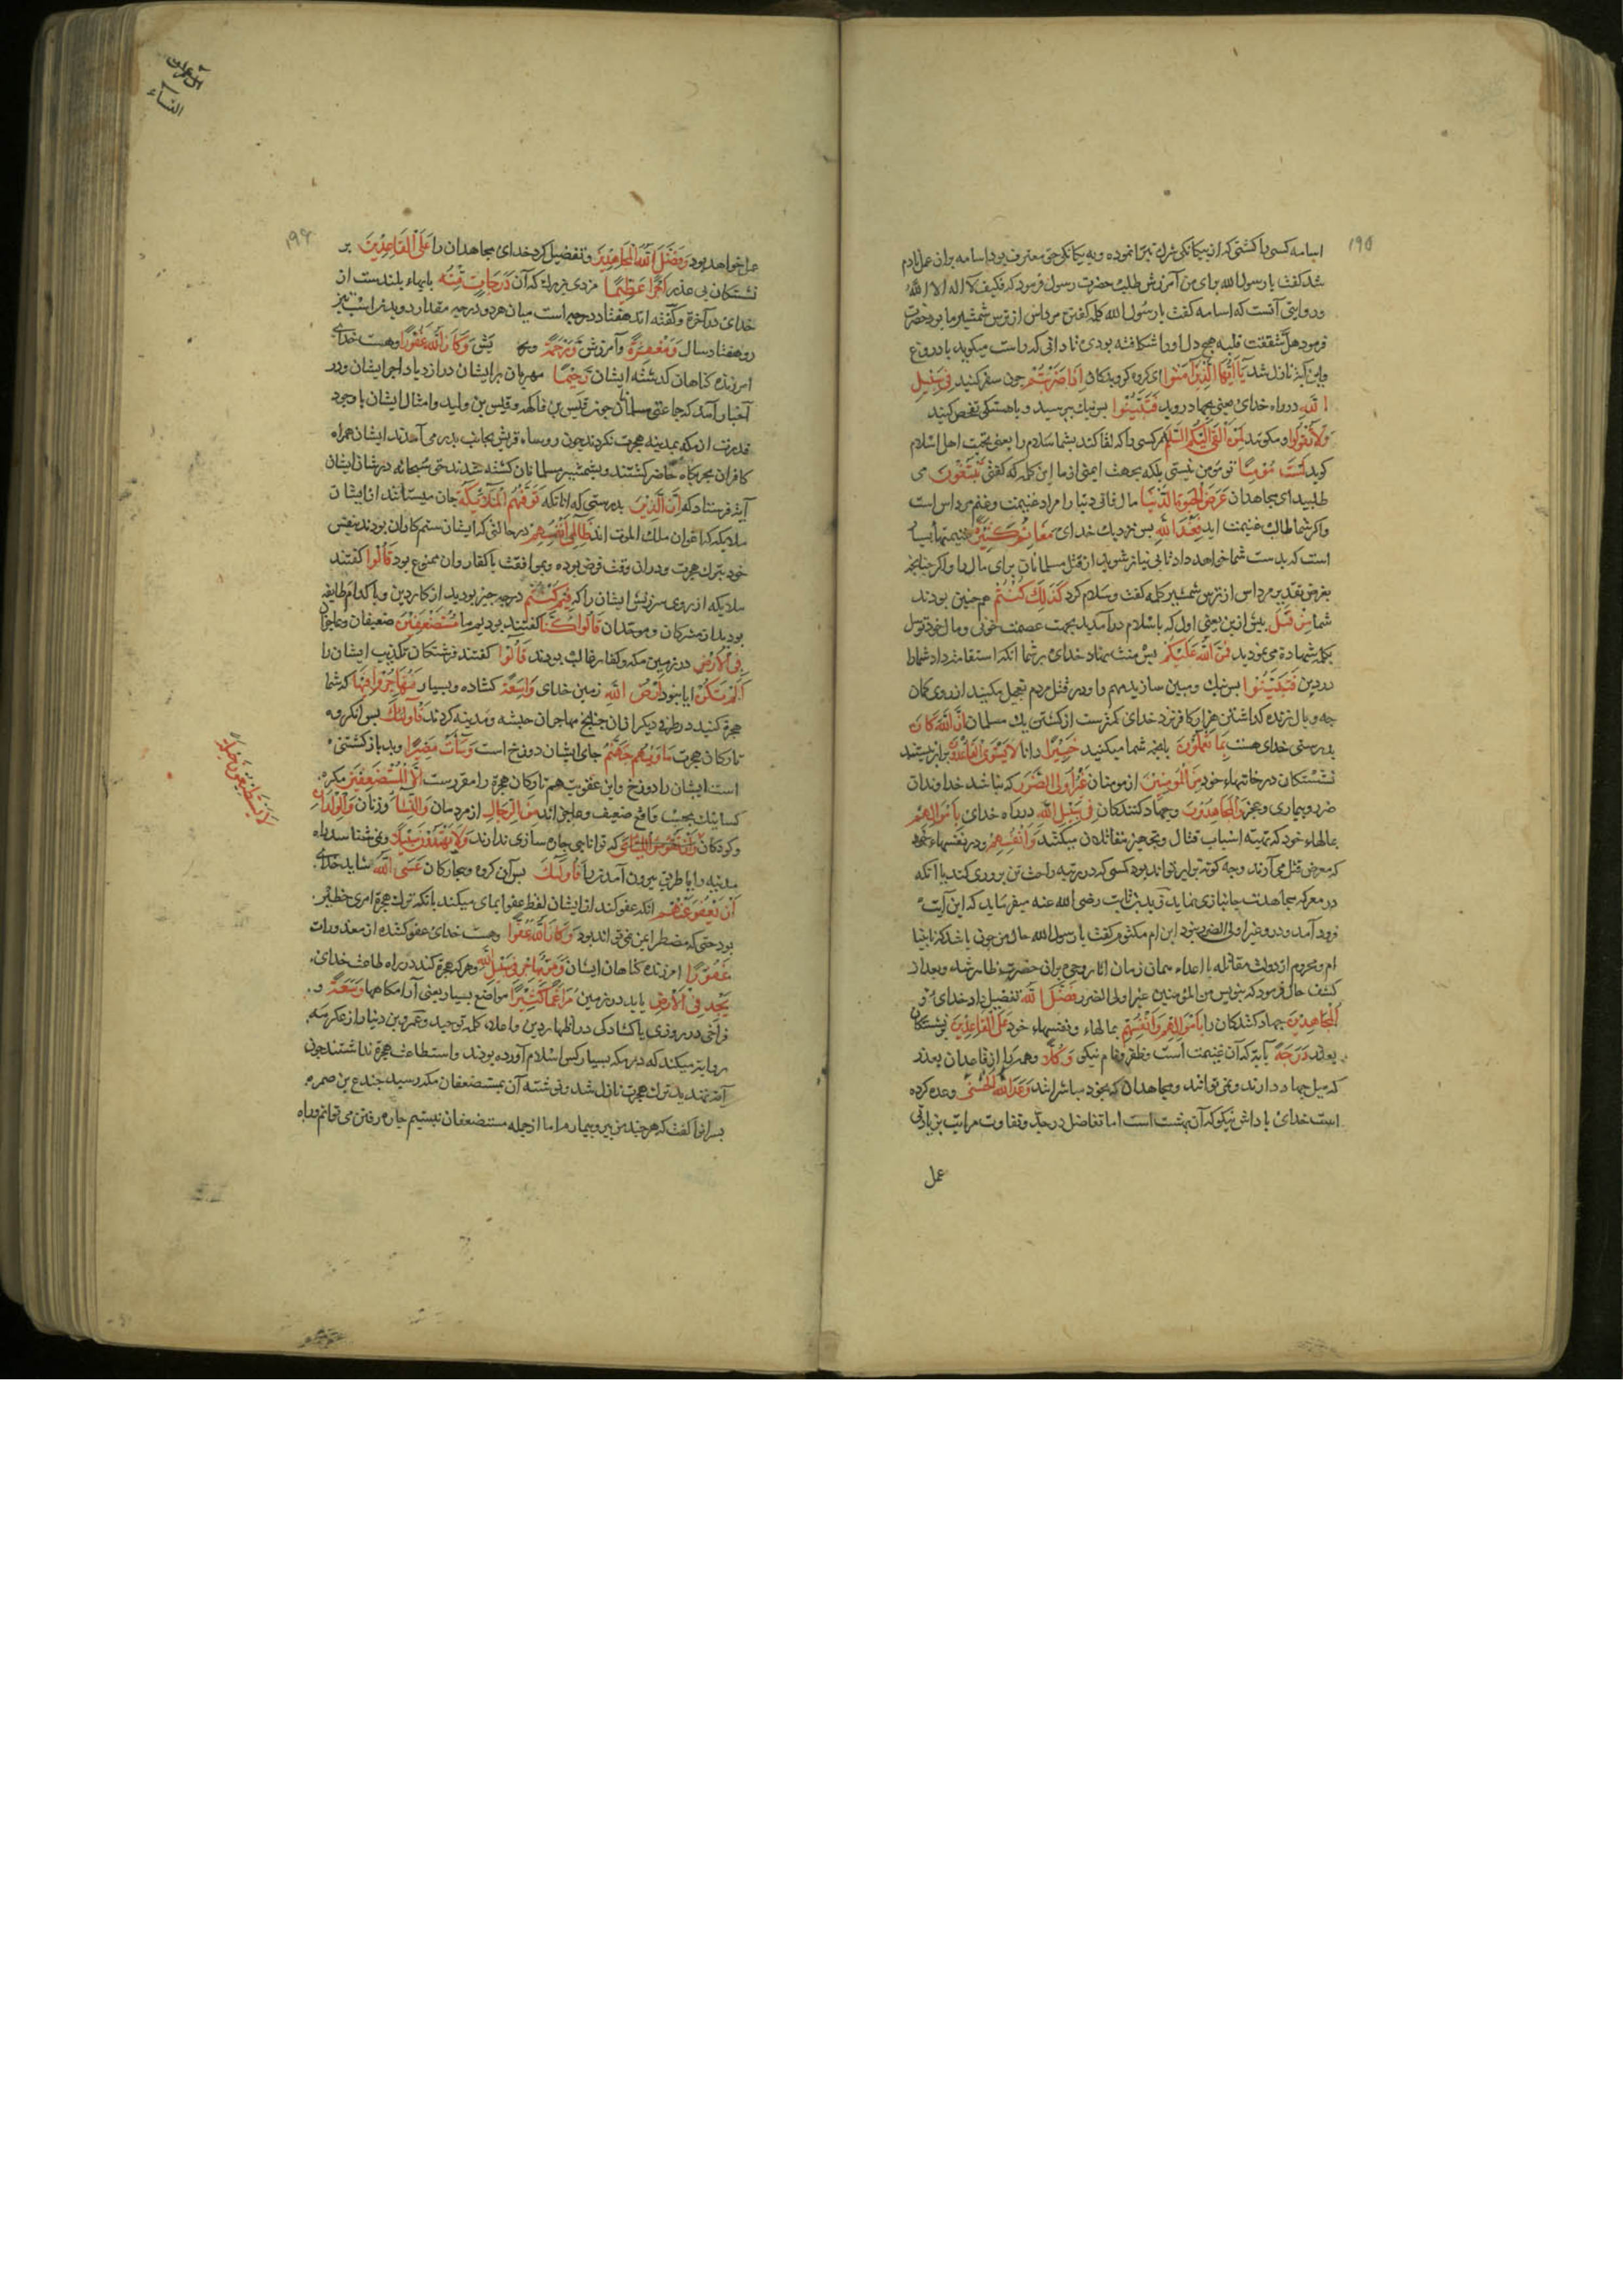 ۱۹۵
اسامه کسی را کشتی که از بیکانکی شرک تبرا نموده و به یکانکی حق معترف بود اسامه بران عمل نادم
شد کفت یا رسول الله برای من آمرزش طلب حضرت رسول فرمود که فکیف لا اله الا الله
و در روایتی آنست که اسامه کفت یا رسول الله کلمه کفتن مرداس از ترس شمشیر ما بود حضرت
فرمود هل شققت قلبه هیچ دل او را شکافته بودی تا دانی که راست میکوید یا دروغ
و این آیة نازل شد یَا أَیُّهَا الَّذِینَ آمَنُوا ای کروه کرویدکان إِذَا ضَرَبْتُمْ چون سفر کنید فِی سَبِیلِ
اللَّهِ در راه خدای یعنی بجهاد روید فَتَبَیَّنُوا پس نیک بپرسید و باهستکی تفحص کنید
وَلَا تَقُولُوا و مکویید لِمَنْ أَلْقَى إِلَيْكُمُ السَّلَمَ هر کسی را که القا کند بشما سلام را یعنی تحیت اهل اسلام
کوید لَسْتَ مُؤْمِنًا تو مؤمن نیستی بلکه بجهت ایمنی از ما این کلمه که کفتی تَبْتَغُونَ می
طلبید ای مجاهدان عَرَضَ الْحَیَوةِ الدُّنْیَا مال فانی دنیا را مراد غنیمت و غنم مرداس است
و اکر شما طالب غنیمت اید فَعِنْدَ اللَّهِ پس نزدیک خدای مَغَانِمُ كَثِیرَةٌ غنیمتهاء بسیار
است که بدست شما خواهد داد تا بی نیاز شوید از قتل مسلمانان برای مال را و اکر چنانچه
بفرض تقدیر مرداس از ترس شمشیر کلمه کفت و سلام کرد كَذَلِكَ كُنْتُمْ هم چنین بودند
شما مِنْ قَبْلُ پیش ازین یعنی اول که باسلام درآمدید بجهت عصمت خون و مال خود توسل
بکلمه شهادة می نمودید فَمَنَّ اللَّهُ عَلَیْكُمْ پس منت نهاد خدای بر شما آنکه استقامت داد شما را
در دین فَتَبَیَّنُوا پس نیک و مبین سازید مهم را و در قتل مردم تعجیل مکنید از روی کمان
چه وبال زنده کذاشتن هزار کافر نزد خدای کمترست از کشتن یک مسلمان إِنَّ اللَّهَ كَانَ
بدرستی خدای هست بِمَا تَعْمَلُونَ بانچه شما میکنید خَبِیرًا دانا لَا یَسْتَوِی الْقَاعِدُونَ برابر نیستند
نشستکان در خانهاء خود مِنَ الْمُؤْمِنِینَ از مومنان غَیْرُ أُولِی الضَّرَرِ که نباشد خداوندان
ضرر و بیماری و عجز وَالْمُجَاهِدُونَ و جهاد کنندکان فِی سَبِیلِ اللَّهِ در راه خدای بِأَمْوَالِهِمْ
بمالهاء خود که تهیه اسباب قتال و تجهیز مقاتلان میکنند وَأَنْفُسِهِمْ و در نفسهاء خود
که معرض قتل می آرند و چه کونه برابر تواند بود کسی که در مرتبه راحت تن پروری کند با آنکه
در معرکه مجاهدت جانبازی نماید زید بن ثابت رضی الله عنه میفرماید که این آیت
فرود آمد و درو غیر اولی الضرر نبود ابن ام مکتوم کفت یا رسول الله حال من چونی باشد که نابینا
ام و محروم از دولت مقاتله با اعداء همان زمان آثار وحی بران حضرت ظاهر شد و بعد از
کشف حال فرمود که بنویس من المؤمنین غیر اولی الضرر فَضَّلَ اللَّهُ تفضیل داد خدای
الْمُجَاهِدِینَ جهاد کنندکان را بِأَمْوَالِهِمْ وَأَنْفُسِهِمْ بمالهاء و نفسهاء خود عَلَى الْقَاعِدِینَ بر نشستکان
بعذر دَرَجَةً پایه که آن غنیمت است و ظفر و نام نیکو وَكُلًّا و همه را از قاعدان بعذر
که میل جهاد دارند و نمی توانند و مجاهدان که بخود مباشراند وَعَدَ اللَّهُ الْحُسْنَى وعده کرده
است خدای پاداش نیکو که آن بهشت است اما تفاضل درجات و تفاوت مراتب بزیادتی
عمل
آل عمران
النساء
۱۹۶
عمل خواهد بود وَفَضَّلَ اللَّهُ الْمُجَاهِدِینَ و تفضیل کرد خدای مجاهدان را عَلَى الْقَاعِدِینَ بر
نشستکان بی عذر أَجْرًا عَظِیمًا مزدی بزرک که آن دَرَجَاتٍ مِنْهُ پایهاء بلندست از
خدای در آخرة و کفته اند هفتاد درجه است میان هر دو درجه مقدار دویدن اسب تیز
رو هفتاد سال وَمَغْفِرَةً و آمرزش وَرَحْمَةً و بخشایش وَكَانَ اللَّهُ غَفُورًا و هست خدای
آمرزنده کناهان کذشته ایشان رَحِیمًا مهربان بر ایشان در ازدیاد اجر ایشان و در
اخبار آمد که جماعتی مسلمانان چون قیس بن فاکهه و قیس بن ولید و امثال ایشان با وجود
قدرت از مکه بمدینه هجرت نکردند چون روساء قریش بجانب بدر می آمدند ایشان همراه
کافران بحربکاه حاضر کشتند و بشمشیر مسلمانان کشته شدند حق سبحانه در شان ایشان
آیة فرستاد که إِنَّ الَّذِینَ بدرستی که آنانکه تَوَفَّیهُمُ الْمَلَائِكَةُ جان میستانند از ایشان
ملایکه که اعوان ملک الموت اند ظَالِمِی أَنْفُسِهِمْ در حالتی که ایشان ستمکاران بودند بنفس
خود بترک هجرت و دران وقت فرض بوده و بموافقت با کفار و آن ممنوع بود قَالُوا کفتند
ملایکه از روی سرزنش ایشان را که فِیمَ كُنْتُمْ در چه چیز بودید از کار دین و با کدام طایفه
بودید از مشرکان و موحدان قَالُوا كُنَّا کفتند بودیم ما مُسْتَضْعَفِینَ ضعیفان و عاجزان
فِی الْأَرْضِ در زمین مکه و کفار غالب بودند قَالُوا کفتند فرشتکان تکذیب ایشان را
أَلَمْ تَكُنْ ایا نبود أَرْضُ اللَّهِ زمین خدای وَاسِعَةً کشاده و بسیار فَتُهَاجِرُوا فِیهَا که شما
هجرة کنید در طرفی دیگر از ان چنانچه مهاجران حبشه و مدینه کردند فَأُولَئِكَ پس آنکروه
تارکان هجرت مَأْوَیهُمْ جَهَنَّمُ جای ایشان دوزخ است وَسَاءَتْ مَصِیرًا و بد بازکشتنی
است ایشان را دوزخ و این عقوبت هم تارکان هجرة را مقررست إِلَّا الْمُسْتَضْعَفِینَ مکر
کسانیک بحسب واقع ضعیف و عاجز اند مِنَ الرِّجَالِ از مردمان وَالنِّسَاءِ و زنان وَالْوِلْدَانِ
و کودکان که توانایی چاره سازی ندارند وَلَا یَهْتَدُونَ سَبِیلًا و نمی شناسند راه
لَا یَسْتَطِیعُونَ حِیلَةً
مدینه را یا طریق بیرون آمدن را فَأُولَئِكَ پس آن کروه بیچارکان عَسَى اللَّهُ شاید خدای
أَنْ یَعْفُوَ عَنْهُمْ آنکه عفو کند از ایشان لفظ عفو ایمای میکند بانکه ترک هجرة امری خطیر
بود حتی که مضطر وَكَانَ اللَّهُ عَفُوًّا و هست خدای عفو کننده از معذورات
غَفُورًا آمرزنده کناهان ایشان وَمَنْ یُهَاجِرْ فِی سَبِیلِ اللَّهِ و هر که هجرة کند در راه طاعت خدای
یَجِدْ فِی الْأَرْضِ یابد در زمین مُرَاغَمًا كَثِیرًا مواضع بسیار یعنی آرامکاهها وَسَعَةً و
فراخی در روزی یا کشادکی در اظهار دین و اعلاء کلمه توحید و عمرو بن دینار از عکرمه
روایة میکند که در مکه بسیار کس اسلام آورده بودند و استطاعت هجرة نداشتند چون
آیة تهدید ترک هجرت نازل شد و نوشته آن بمستضعفان مکه رسید جندع بن ضمره
پسرانرا کفت که هر چند من پیر و بیمارم اما از جمله مستضعفان نیستیم چاره رفتن می توانم و راه